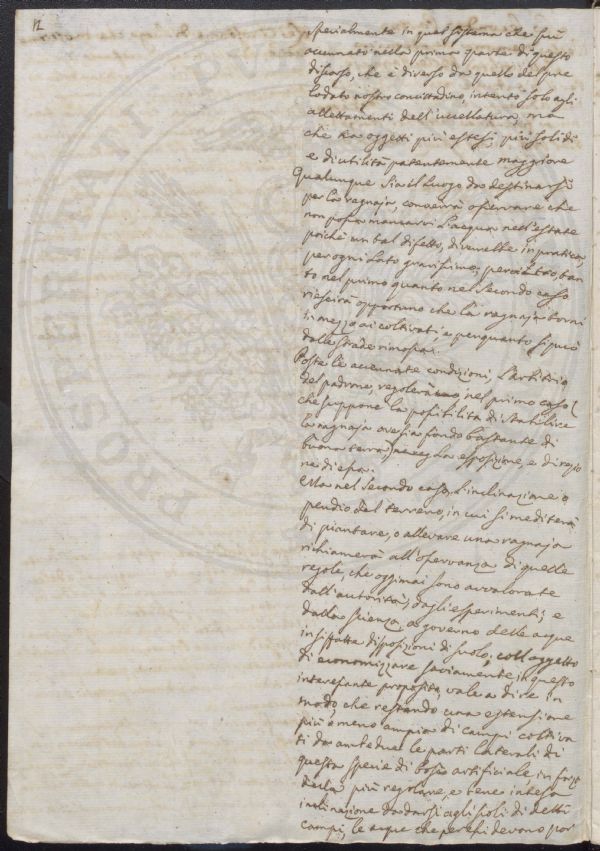 12
specialmente in quel sistema che fu
accennato nella prima parte di questo
discorso, che è diverso da quello del pre
lodato nostro concittadino, intento solo agli
allettamenti dell'uccellatura, ma
che ha oggetti più estesi, più solidi
e di utilità patentemente maggiore
Qualunque sia il luogo da destinarsi
per la ragnaja, converrà osservare che
non possa mancarvi l'acqua nell'estate
poichè un tal difetto, diverrebbe in pratica,
per ogni lato gravissimo; perciò tan
to nel primo quanto nel secondo caso
riescirà opportuno che la ragnaja torni
in mezzo ai coltivati, e per quanto si può
dalle strade rimossa.
Poste le accennate condizioni, l'arbitrio
del padrone, regolerà nel primo caso (
che suppone la possibilità di stabilire
la ragnaja ove sia fondo bastante di
buona terra) la esposizione, e direzio
ne di essa.
Ma nel secondo caso, l'inclinazione o
pendio del terreno, in cui si mediterà
di piantare, o allevare una ragnaja
richiamerà all'osservanza di quelle
regole, che oggimai sono avvalorate
dall'autorità, dagli esperimenti, e
dalla scienza, a governo delle acque
in siffatta disposizioni di suolo; coll'oggetto
di economizzare saviamente, in questo
interessante proposito, vale a dire in
modo, che restando una estensione
più o meno ampia di campi coltiva
ti da ambedue le parti laterali di
questa specie di bosco artificiale, in
della più regolare, e bene intesa
inclinazione da darsi agli scoli di detti
campi, le acque che per essi devono por
PROSPERITATI PUBLICAE